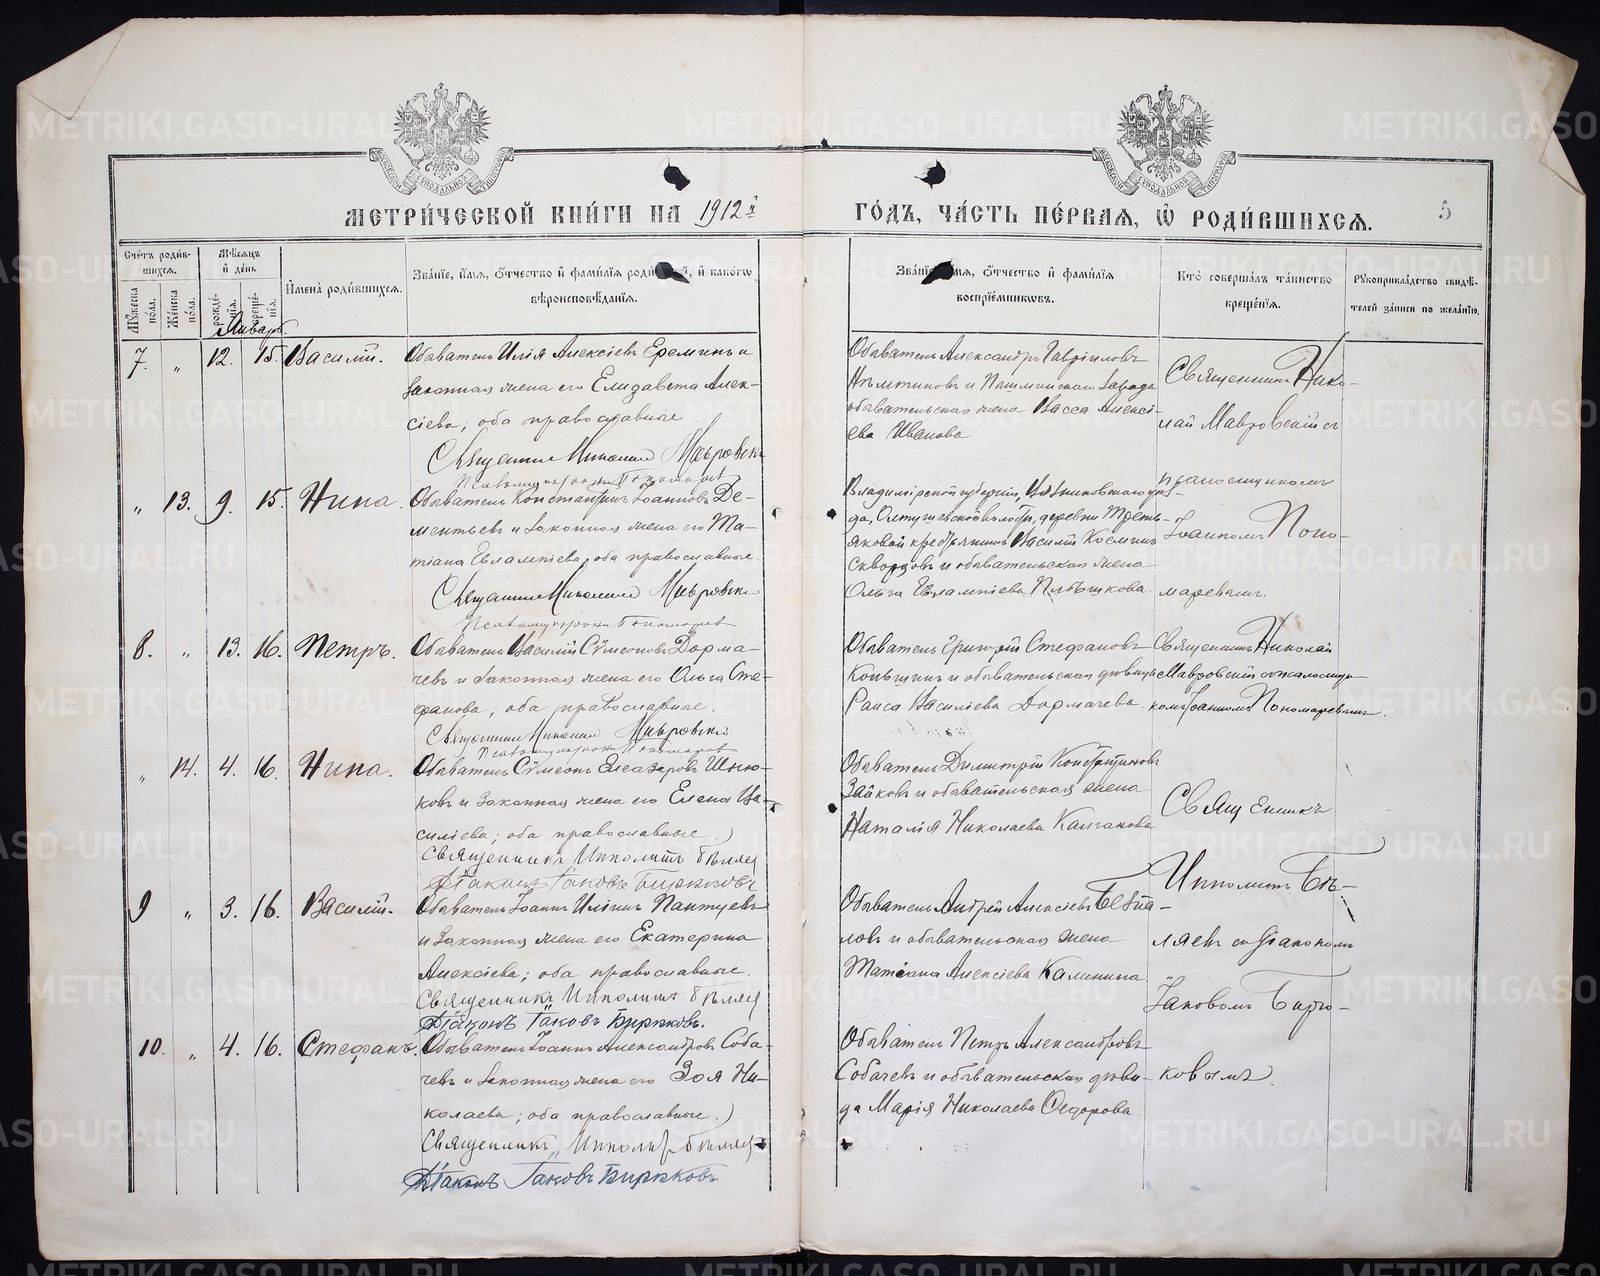 МЕТРИ́ЧЕСКОЙ КНИ́ГИ НА 1912й
ГО́ДЪ, ЧА́СТЬ ПЕ́РВАЯ, Ѽ РОДИ́ВШИХСЯ.
5
Сче́тъ роди́в-
шихся.
Му́жеска по́ла.
Же́нска по́ла.
Мѣ́сяцъ
и́ де́нь
рожде́-
нія.
креще́-
нія.
Январь
И҆мена̀ роди́вшихся.
Зва́ніе, и҆́мя, ѻ҆́тчество и҆ фами́лія роди й, и҆ како́гѡ
вѣроисповѣ́данія.
Зва́ніе мя, ѻ҆́тчество и҆ фами́лія
воспріе́мникѡвъ.
Кто̀ соверша́лъ та́инство
креще́нія.
Рꙋкоприкла́дство свидѣ́-
телей за́писи по жела́нію.
7. " 12. 15. Василій.
Обыватель Илія Алексіевъ Ереминъ и
законная жена его Елизавета Алек-
сіева, оба православные
Священникъ Николай Мавровскій
Псаломщикъ Іоаннъ Пономаревъ
Обыватель Александръ Гавріиловъ
и Пышминскаго завода
обывательская жена Васса Алексі-
ева Иванова
Священникъ Нико-
лай Мавровскій съ
псаломщикомъ
" 13. 9. 15. Нина.
Обыватель Константинъ Іоанновъ Де-
ментьевъ и законная жена его Та-
тіана Евлампіева, оба православные.
Священникъ Николай Мавровскій
Псаломщикъ Іоаннъ Пономаревъ
Владимірской губерніи, уѣз-
да, волости, деревни Треть-
яковой крестьянинъ Василій Косминъ
Скворцовъ и обывательская жена
Ольга Евлампіева Плѣшкова.
Іоанномъ Поно-
маревымъ.
8. " 13. 16. Петръ.
Обыватель Василій Сѵмеоновъ Дорма-
чевъ и законная жена его Ольга Сте-
фанова, оба православные.
Священникъ Николай Мавровскій
Псаломщикъ Іоаннъ Пономаревъ
Обыватель Григорій Стефановъ
и обывательская дѣвица
Раиса Василіева Дормачева.
Священникъ Николай
Мавровскій съ псаломщи-
комъ Іоанномъ Пономаревымъ.
" 14. 4. 16. Нина.
Обыватель Сѵмеонъ Елеазаровъ
ковъ и законная жена его Елена Ва-
силіева; оба православные.)
Священникъ Ипполитъ Бѣляев
Діаконъ Іаковъ Бирюковъ
Обыватель Димитрій Константиновъ
Зайковъ и обывательская жена
Наталія Николаева Калганова
Священникъ
Ипполитъ Бѣ-
9 " 3. 16. Василій.
Обыватель Іоаннъ Иліинъ Пантуевъ
и законная жена его Екатерина
Алексіева; оба православные.
Священникъ Ипполитъ Бѣляев
Діаконъ Іаковъ Бирюковъ.
Обыватель Андрей Алексіевъ
ловъ и обывательская жена
Татіана Алексіева Калинина
ляевъ съ діакономъ
Іаковомъ Бирю-
10. " 4. 16. Стефанъ.
Обыватель Іоаннъ Александровъ Соба-
чевъ и законная жена его Зоя Ни-
колаева; оба православные.)
Священникъ Ипполитъ Бѣляев
Діаконъ Іаковъ Бирюковъ
Обыватель Петръ Александровъ
Собачевъ и обывательская дѣви-
ца Марія Николаева Ѳедорова.
ковымъ.
METRIKI.GASO-URAL.RU